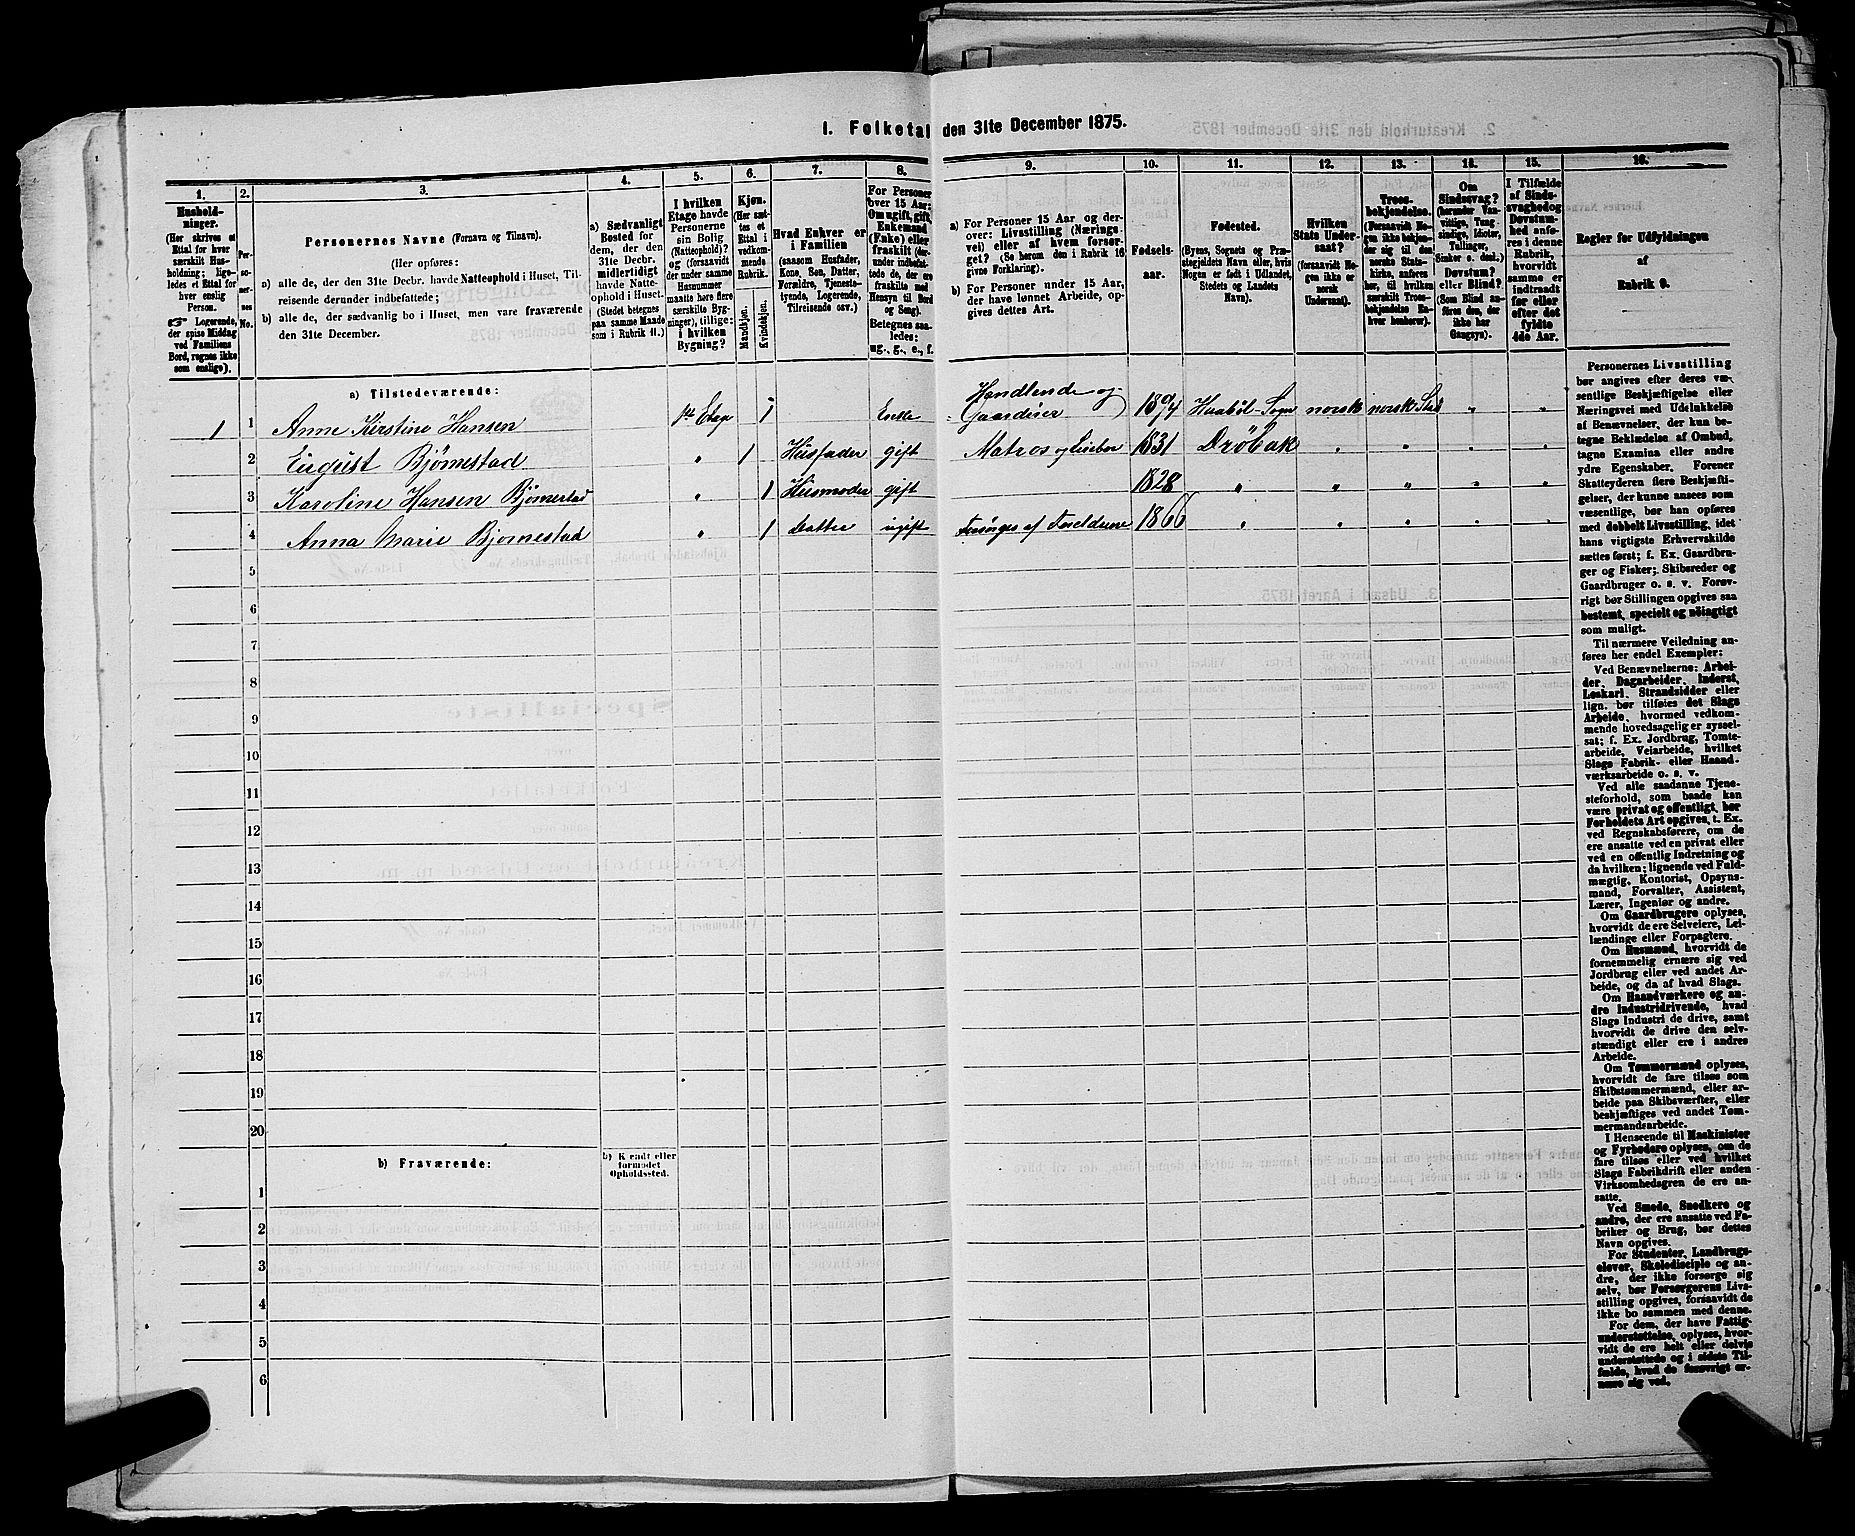 1. Folketal den 31te December 1875.
1. 2. 3. 4. 5. 6. 7. 8. 9. 10. 11. 12. 13. 14. 15. 16.
Hushold-
ninger.
(Her skrives et
Ettal for hver
særskilt Hus-
holdning; lige-
ledes et Ettal for
hver enslig
Person.
Logerende,
der spise Middag
ved Familiens
Bord, regnes ikke
som enslige).
Per-
so-
ner-
nes
No.
Personernes Navne (Fornavn og Tilnavn).
(Her opføres:
a) alle de, der den 31te Decbr. havde Natteophold i Huset, Til-
reisende derunder indbefattede;
b) alle de, der sædvanlig bo i Huset, men vare fraværende
den 31te December.
a) Sædvanligt
Bosted for
dem, der den
31te Decbr.
midlertidigt
havde Natte-
ophold i Huset.
(Stedet betegnes
paa samme Maade
som i Rubrik 11.)
I hvilken
Etage havde
Personerne
sin Bolig
(Natteophold)?
og (forsaavidt
der under samme
Husnummer
maatte høre flere
særskilte Byg-
ninger), tillige:
i hvilken
Bygning?
Kjøn.
(Her sæt-
tes et
Ettal i
vedkom-
mende
Rubrik.)
Mandkjøn.
Kvindekjøn.
Hvad Enhver er
i Familien
(saasom Husfader,
Kone, Søn, Datter,
Forældre, Tjeneste-
tyende, Logerende,
Tilreisende osv.)
For Personer
over 15 Aar:
Om ugift, gift,
Enkemand
(Enke) eller
fraskilt (der-
under indbefat-
tede de, der ere
fraskilte med
Hensyn til Bord
og Seng).
Betegnes saa-
ledes:
ug., g., e., f.
a) For Personer 15 Aar og der-
over: Livsstilling (Nærings-
vei) eller af hvem forsør-
get? (Se herom den i Rubrik 16
givne Forklaring).
b) For Personer under 15 Aar,
der have lønnet Arbeide, op-
gives dettes Art.
Fødsels-
aar.
Fødested.
(Byens, Sognets og Præ-
stegjeldets Navn eller, hvis
Nogen er født i Udlandet,
Stedets og Landets
Navn).
Hvilken
Stats Under-
saat?
(forsaavidt No-
gen ikke er
norsk
Undersaat).
Troes-
bekjendelse.
(Forsaavidt No-
gen ikke bekjen-
der sig til den
norske Stats-
kirke, anføres
her, til hvilken
særskilt Troes-
bekjendelse En-
hver henhører).
Om
Sindssvag?
(herunder Van-
vittige, Tung-
sindige, Idioter,
Tullinger,
Sinker o. desl.)
Døvstum?
eller Blind?
(Som Blind an-
føres den, der
ikke har
Gangsyn).
I Tilfælde
af Sinds-
svaghed og
Døvstum-
hed anfø-
res i denne
Rubrik,
hvorvidt
samme er
indtraadt
før eller
efter det
fyldte
4de Aar.
Regler for Udfyldningen
af
Rubrik 9.
a) Tilstedeværende:
1 1 Anne Kirstine Hansen 1ste Etage 1 Enke Handlende og
Gaardeier Haabøl-Sogn norsk norsk Stat „ „
2 August Bjørnestad „ 1 Husfader gift Matros og 1831 Drøbak „ „ „ „
3 Karoline Hansen Bjørnestad „ 1 Husmoder gift 1828 „ „ „ „ „
4 Anna Marie Bjørnestad „ 1 Datter ugift Forsørges af Foreldrene 1866 „ „ „ „ „
5
6
7
8
9
10
11
12
13
14
15
16
17
18
19
20
b) Fraværende:
b) Kjendt eller
formodet
Opholdssted.
1
2
3
4
5
6
Personernes Livsstilling
bør angives efter deres væ-
sentlige Beskjæftigelse eller
Næringsvei med Udelukkelse
af Benævnelser, der kun be-
tegne Beklædelse af Ombud,
tagne Examina eller andre
ydre Egenskaber. Forener
Skatteyderen flere Beskjæfti-
gelser, der kunne ansees som
væsentlige, bør han opføres
med dobbelt Livsstilling, idet
hans vigtigste Erhvervskilde
sættes først; f. Ex. Gaardbru-
ger og Fisker; Skibsreder og
Gaardbruger o. s. v. Forøv-
rigt bør Stillingen opgives saa
bestemt, specielt og nøiagtigt
som muligt.
Til nærmere Veiledning an-
føres her endel Exempler:
Ved Benævnelserne: Arbei-
der, Dagarbeider, Inderst,
Løskarl, Strandsidder eller
lign. bør tilføies det Slags
Arbeide, hvormed vedkom-
mende hovedsagelig er syssel-
sat; f. Ex. Jordbrug, Tomte-
arbeide, Veiarbeide, hvilket
Slags Fabrik- eller Haand-
værksarbeide o. s. v.
Ved alle saadanne Tjene-
steforhold, som baade kan
være privat og offentligt, bør
Forholdets Art opgives, t. Ex.
ved Regnskabsførere, om de
ere ansatte ved en privat eller
ved en offentlig Indretning og
da hvilken; lignende ved Fuld-
mægtig, Kontorist, Opsyns-
mand, Forvalter, Assistent,
Lærer, Ingeniør og andre.
Om Gaardbrugere oplyses,
hvorvidt de ere Selveiere, Lei-
lændinge eller Forpagtere.
Om Husmænd, hvorvidt de
fornemmelig ernære sig ved
Jordbrug eller ved andet Ar-
beide, og da af hvad Slags.
Om Haandværkere og an-
dre Industridrivende, hvad
Slags Industri de drive, samt
hvorvidt de drive den selv-
stændigt eller ere i andres
Arbeide.
Om Tømmermænd oplyses,
hvorvidt de fare tilsøs som
Skibstømmermænd, eller ar-
beide paa Skibsværfter, eller
beskjæftiges ved andet Tøm-
mermandsarbeide.
I Henseende til Maskinister
og Fyrbødere oplyses, om de
fare tilsøs eller ved hvilket
Slags Fabrikdrift eller anden
Virksomhedsgren de ere an-
satte.
Ved Smede, Snedkere og
andre, der ere ansatte ved Fa-
briker og Brug, bør dettes
Navn opgives.
For Studenter, Landbrugs-
elever, Skoledisciple og an-
dre, der ikke forsørge sig
selv, bør Forsørgerens Livs-
stilling opgives, forsaavidt de
ikke bo sammen med denne.
For dem, der have Fattig-
understøttelse, oplyses, hvor-
vidt de ere helt eller delvis
understøttede og i sidste Til-
fælde, hvad de forøvrigt er-
nære sig ved.